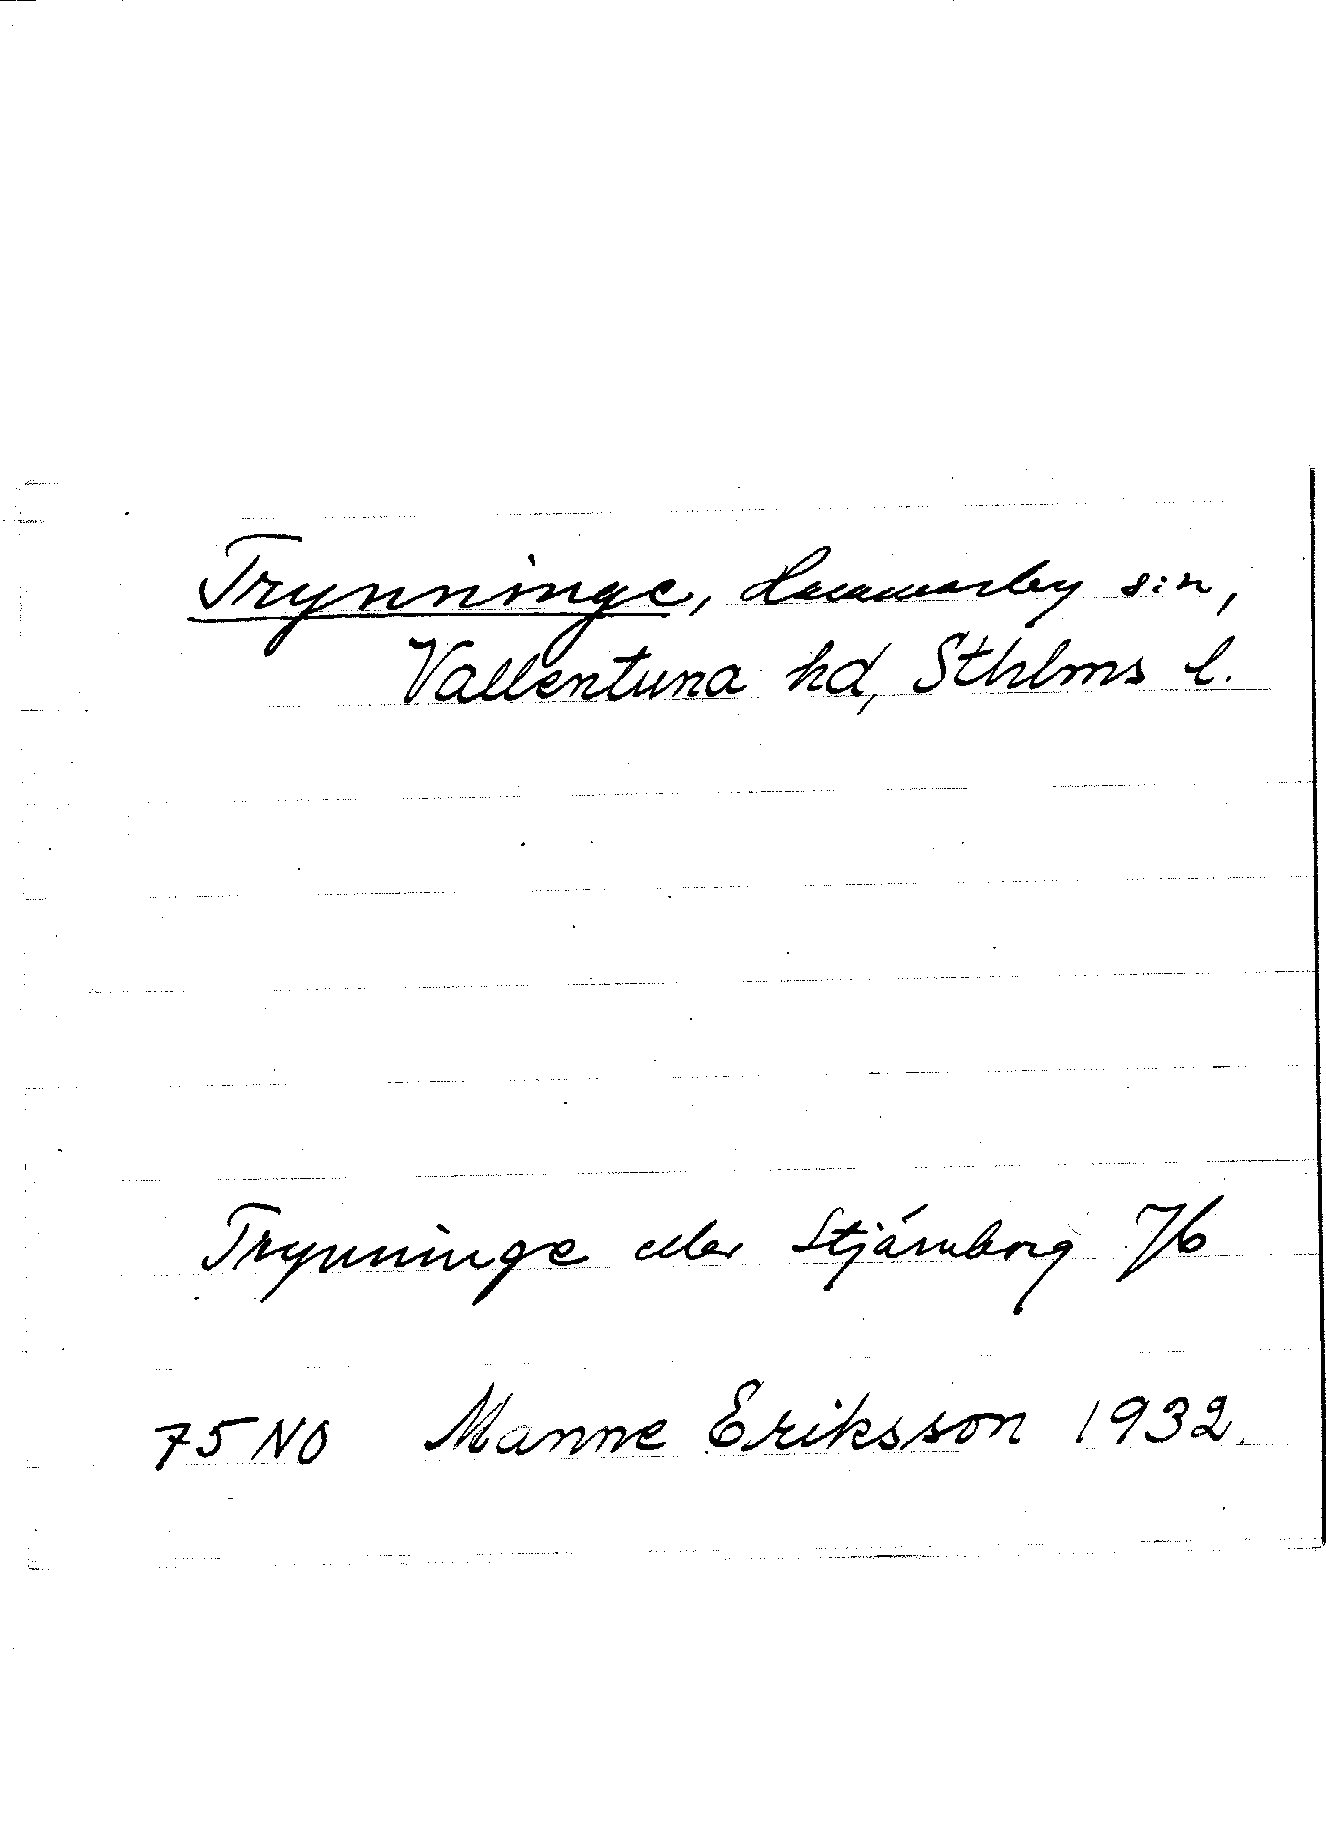 Trynninge, Hammarby s:n,
Vallentuna hd, Sthlms l.
Trynninge eller Stjärnborg
75 NO Manne Eriksson 1932.